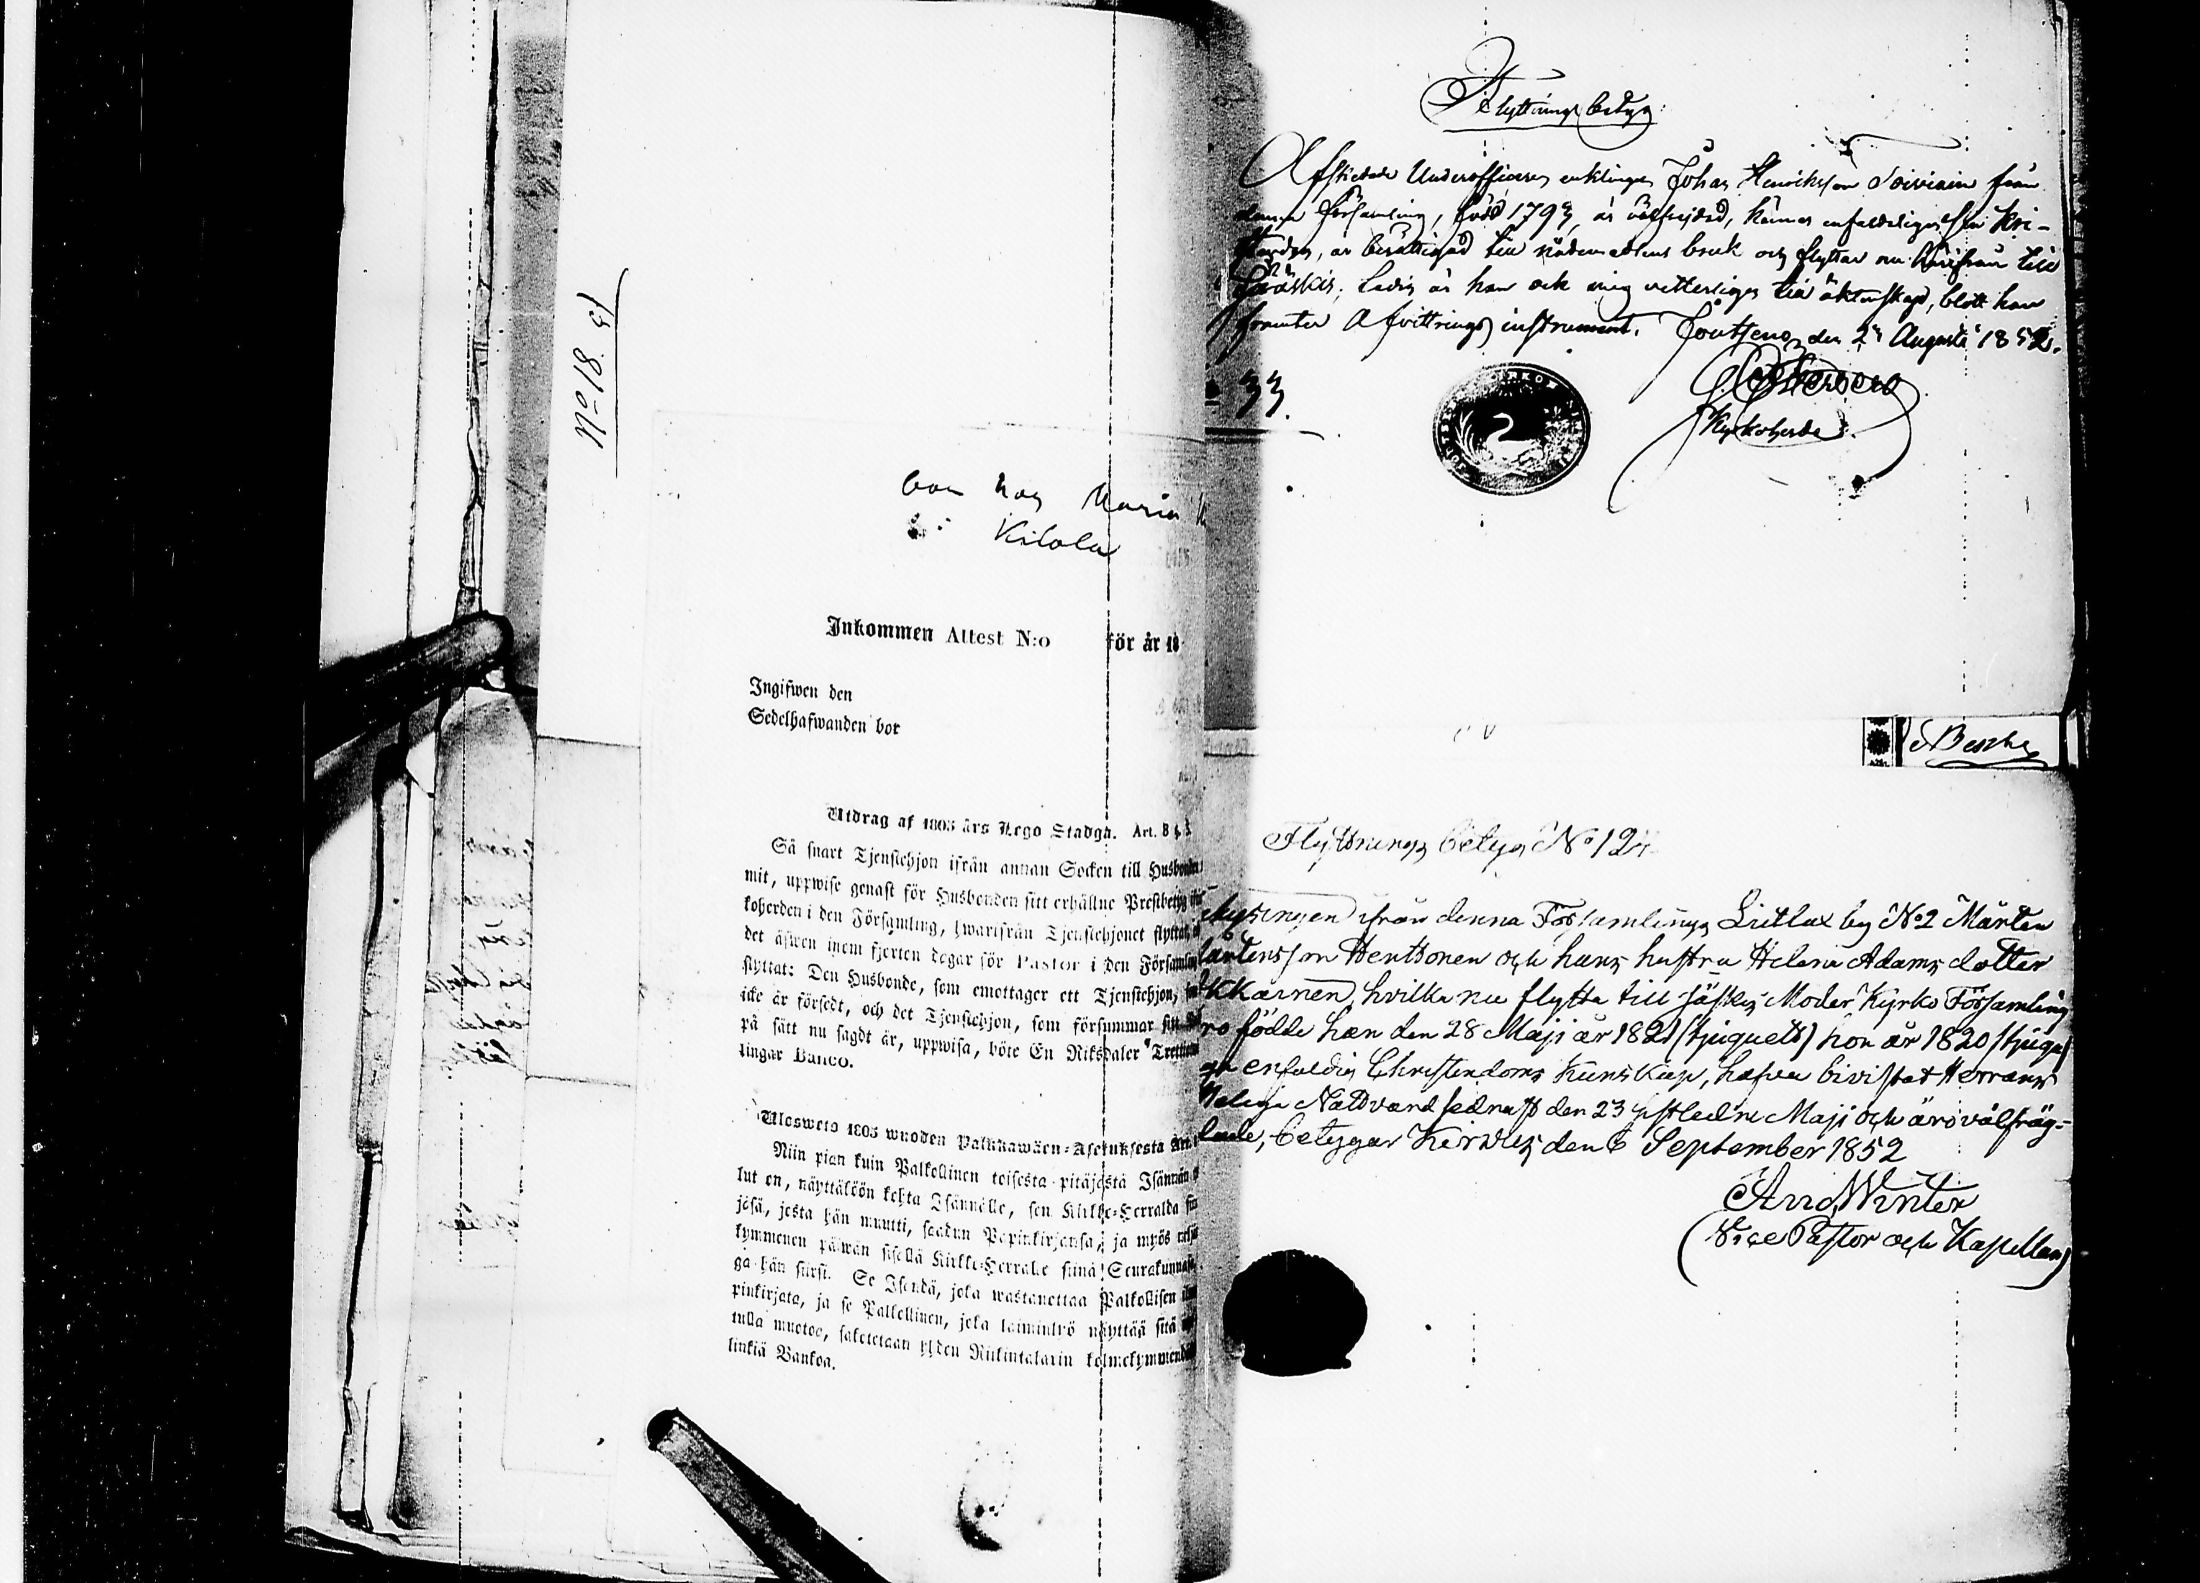 No 18.
bor hos Maria
i Kilola
Inkommen Attest N:o för år 18
Ingifwen den
Sedelhafwanden bor
Utdrag af 1805 års Lego Stadga. Art. 8 §.
Så snart Tjenstehjon ifrån annan Socken till Husbonden
mit, uppwise genast för Husbonden sitt erhållne Prestbetyg
koherden i den Församling, hwarifrån Tjenstehjonet flyttat,
det äfwen inom fjorton dagar för Pastor i den Församling
flyttat: Den Husbonde, som emottager ett Tjenstehjon,
icke är försedt, och det Tjenstehjon, som försummar
på sätt nu sagdt är, uppwisa, böte En Riksdaler Trettio
lingar Banco.
Ulosweto 1805 wuoden Palkkawäen-Asetuksesta
Niin pian kuin Palkollinen toisesta pitäjästä Isännän
lut on, näyttäköön kohta Isännälle, sen Kirkko-Herralda
jäsä, josta hän muutti, saadun Papinkirjansa, ja myös
kymmenen päiwän sisellä Kirkko-Herralle siinä Seurakunnasa
ga hän siirsi. Se Isändä, joka wastanottaa Palkollisen
pinkirjata, ja se Palkollinen, joka laiminlyö näyttää sitä
tulla muotoo, saketetaan yhden Riikintalarin kolmekymmendä
linkiä Bankoa.
Flyttnings betyg.
Afskedade Underofficeren enklingen Johan Henriksson Toiviain från
denna församling, född 1793, är välfrejdad, känner enfaldeligen sin kri-
stendom, är berättigad till nådemedlens bruk och flyttar nu härifrån till
Jääskis; Ledig är han ock mig vetterligen till äktenskap, blott han
framter Afvittrings instrument. Joutseno den 2 Augusti 1852.
33.
Kyrkoherde.
Flyttnings betyg No 124
ifrån denna Församlings Lietlax by No 2 Mårten
Henttonen och hans hustru Helena Adams dotter
kkärnen, hvilka nu flytta till Jäskis Moder Kyrko Församling
ro födde han den 28 Maji år 1821 (tjuguett) hon år 1820 (tjugu)
enfaldig Christendoms Kunskap, hafva bivistat Herrans
Heliga Nattvard sednast den 23 sistledne Maji och äro välfräg-
dade, betygar Kirvus den 6 September 1852
Arvid Winter
(Vice Pastor och Kapellan)